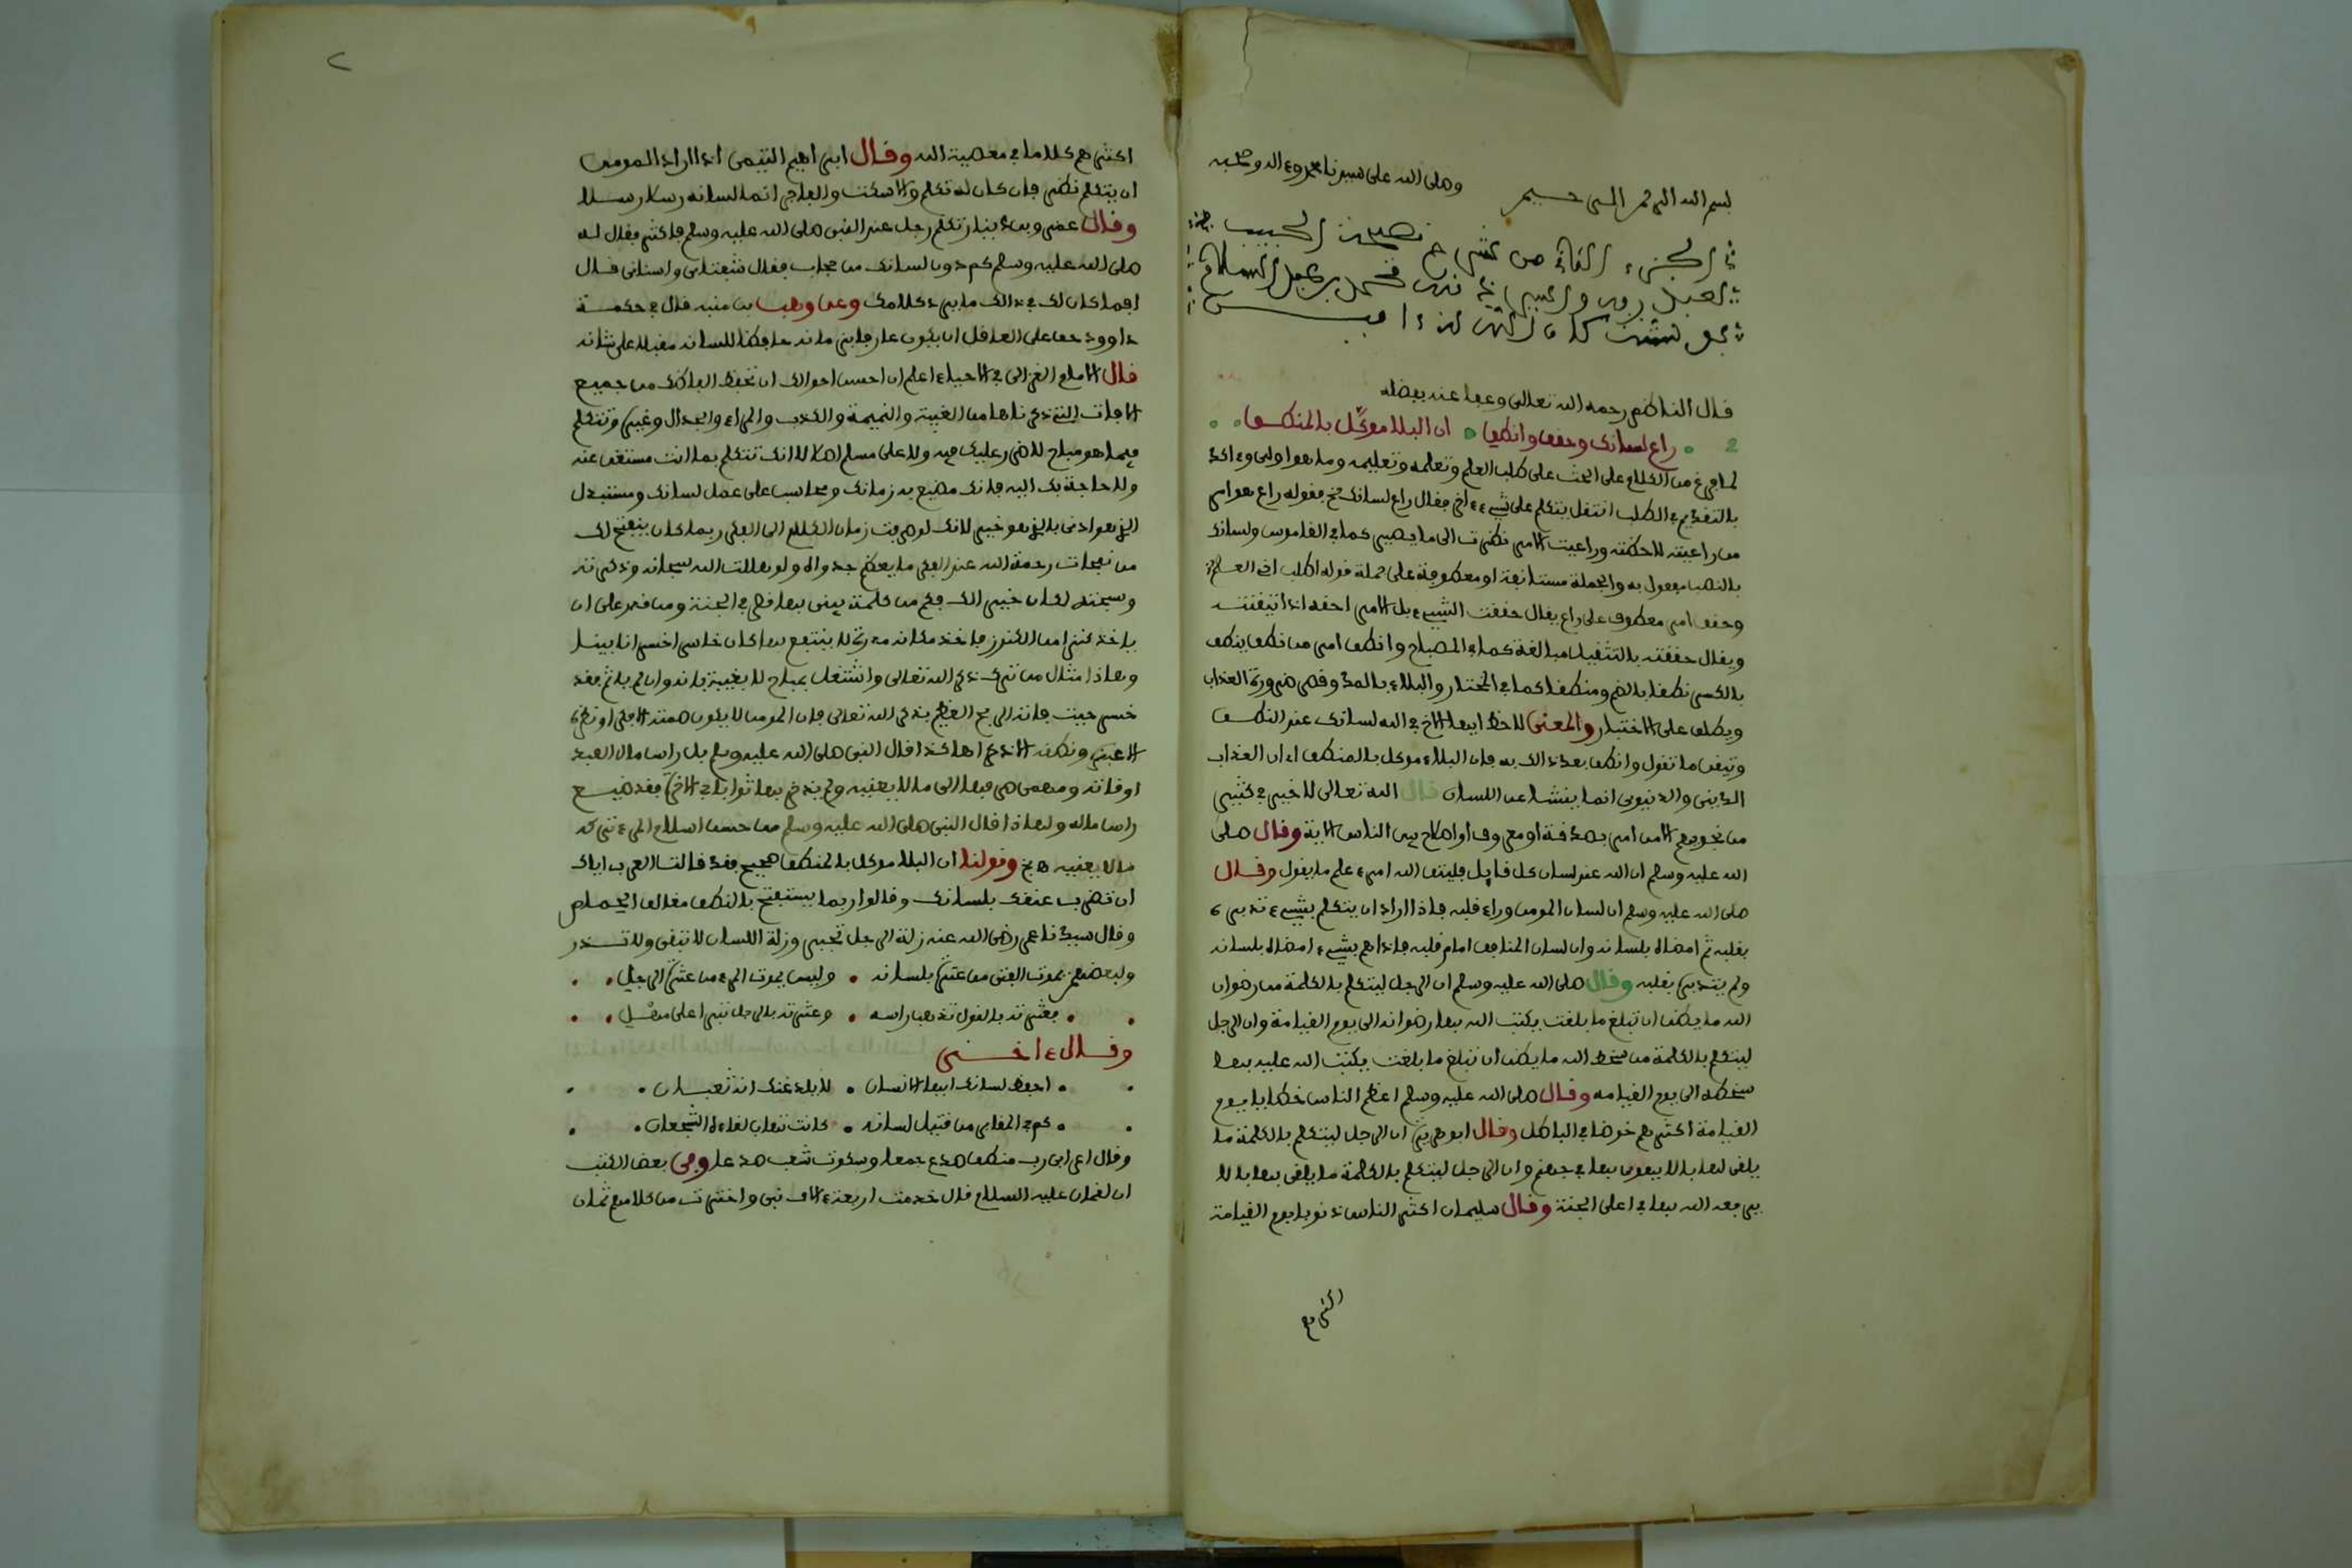 بسم الله الرحمن الرحيم وصلى الله على سيدنا محمد وءاله وصحبه
الجزء الثاني من نصيحة الحبيب
قال الناظم رحمه الله تعالى وعفا عنه بفضله
راع لسانك وحقق وانطقا ان البلا موكل بالمنطقا
لما فرغ من الكلام على الحث على طلب العلم وتعلمه وتعليمه وما هو اولى وءاكد
بالتقديم في الطلب انتقل يتكلم على شيء ءاخر فقال راع لسانك فقوله راع هو امر
من راعيته لاحظته وراعيت الامر نظرت الى ما يصير كما في القاموس ولسانك
بالنصب مفعول به والجملة مستانفة او معطوفة على جملة قوله اطلب اخي العلم
وحقق امر معطوف على راع يقال حققت الشيء بل الامر احقه اذا تيقنته
ويقال حققته بالتثقيل مبالغة كما في المصباح وانطق امر من نطق ينطق
بالكسر نطقا بالضم ومنطقا كما في المختار والبلاء بالمد وقصر ضرورة العذاب
ويطلق على الاختبار والمعنى لاحظ ايها الاخ في الله لسانك عند النطق
وتيقن ما تقول وانطق بعد ذالك به فان البلاء موكل بالمنطق اي ان العذاب
الديني والدنيوي انما ينشا عن اللسان قال الله تعالى لا خير في كثير
من نجويهم الا من امر بصدقة او معروف او اصلاح بين الناس الاية وقال صلى
الله عليه وسلم ان الله عند لسان كل قايل فليتق الله امرء علم ما يقول وقال
صلى الله عليه وسلم ان لسان المومن وراء قلبه فاذا اراد ان يتكلم بشيء تدبره
بقلبه ثم امضاه بلسانه وان لسان المنافق امام قلبه فاذا هم بشيء امضاه بلسانه
ولم يتدبره بقلبه وقال صلى الله عليه وسلم ان الرجل ليتكلم بالكلمة من رضوان
الله ما يظن ان تبلغ ما بلغت يكتب الله بها رضوانه الى يوم القيامة وان الرجل
ليتكلم بالكلمة من سخط الله ما يظن ان تبلغ ما بلغت يكتب الله عليه بها
سخطه الى يوم القيامه وقال صلى الله عليه وسلم اعظم الناس خطايا يوم
القيامة اكثرهم خوضا في الباطل وقال ابو هريرة ان الرجل ليتكلم بالكلمة ما
يلقى لها بالا يهوى بها في جهنم وان الرجل ليتكلم بالكلمة ما يلقى بها بالا
يرفعه الله بها في اعلى الجنة وقال سليمان اكثر الناس ذنوبا يوم القيامة
اكثرهم
اكثرهم كلاما في معصية الله وقال ابراهيم التيمي اذا اراد المومن
ان يتكلم نظر فان كان له تكلم والا سكت والفاجر انما لسانه رسلا رسلا
وقال عمرو بن دينار تكلم رجل عند النبي صلى الله عليه وسلم فاكثر فقال له
صلى الله عليه وسلم كم دون لسانك من حجاب فقال شفتاي واسناني قال
افما كان لك في ذالك ما يرد كلامك وعن وهب بن منبه قال في حكمة
داوود حق على العاقل ان يكون عارفا بزمانه حافظا للسانه مقبلا على شانه
قال الامام الغزالي في الاحياء اعلم ان احسن احوالك ان تحفظ الفاظك من جميع
الافات التي ذكرناها من الغيبة والنميمة والكذب والمراء والجدال وغيرها وتتكلم
فيما هو مباح لا ضرر عليك فيه ولا على مسلم اصلا الا انك تتكلم بما انت مستغن عنه
ولا حاجة بك اليه فانك مضيع به زمانك ومحاسب على عمل لسانك ومستبدل
الذي هو ادنى بالذي هو خير لانك لو صرفت زمان الكلام الى الفكر ربما كان ينفتح لك
من نفحات رحمة الله عند الفكر ما يعظم جدواه ولو هللت الله سبحانه وذكرته
وسبحته لكان خيرا لك فكم من كلمة يبنى بها قصر في الجنة ومن قدر على ان
ياخذ كنزا من الكنوز فاخذ مكانه مدرة لا ينتفع بها كان خاسرا خسرانا مبينا
وهاذا مثال من ترك ذكر الله تعالى واشتغل بمباح لا يعنيه فانه وان لم ياثم فقد
خسر حيث فاته الربح العظيم بذكر الله تعالى فان المومن لا يكون صمته الا فكرا ونظره
الا عبرة ونطقه الا ذكرا هاكذا قال النبي صلى الله عليه وسلم بل راس مال العبد
اوقاته ومهما صرفها الى ما لا يعنيه ولم يدخر بها ثوابا في الاخرة فقد ضيع
راس ماله ولهاذا قال النبي صلى الله عليه وسلم من حسن اسلام المرء تركه
ما لا يعنيه وقولنا ان البلا موكل بالمنطق صحيح فقد قالت العرب اياك
ان تضرب عنقك بلسانك وقالوا ربما يستفتح بالنطق مغالق الحمام
وقال سيدنا علي رضي الله عنه زلة الرجل تجبر وزلة اللسان لا تبقى ولا تذر
ولبعضهم يموت الفتى من عثرة بلسانه وليس يموت المرء من عثرة الرجل
فعثرته بالقول تذهب راسه وعثرته بالرجل تبرا على مهل
وقال ءاخر
احفظ لسانك ايها الانسان لا يلدغنك انه ثعبان
كم في المقابر من قتيل لسانه كانت تهاب لقاءه الشجعان
وقال اعرابي رب منطق صدع جمعا وسكوت شعب صدعا وفي بعض الكتب
ان لقمان عليه السلام قال خدمت اربعة ءالاف نبي واخترت من كلامهم ثمان